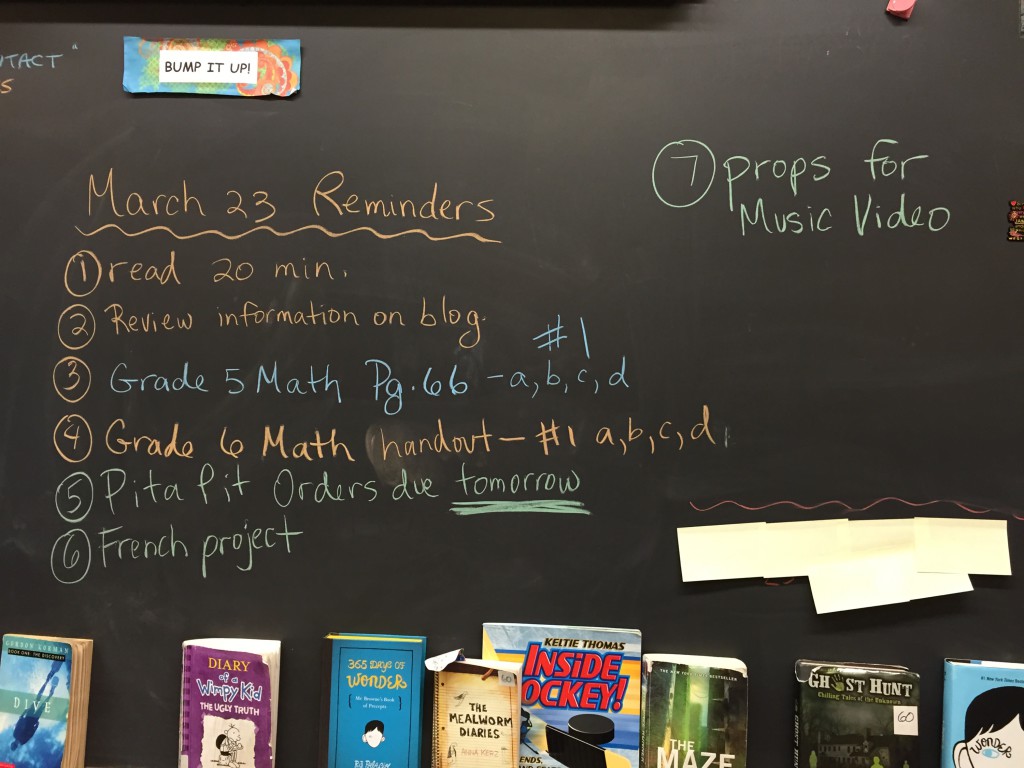 NTACT "
S
BUMP IT UP!
March 23 Reminders
① read 20 min.
② Review information on blog.
#1
③ Grade 5 Math Pg. 66 - a, b, c, d
④ Grade 6 Math handout - #1 a, b, c, d
⑤ Pita Pit Orders due tomorrow
⑥ French project
⑦ props for
Music Video
GORDON KORMAN
BOOK ONE: THE DISCOVERY
DIVE
DIARY
of a
Wimpy Kid
THE UGLY TRUTH
365 DAYS OF
WONDER
Mr. Browne's Book
of Precepts
R.J. PALACIO
THE
MEALWORM
DIARIES
ANNA KERZ
KELTIE THOMAS
INSIDE
OCKEY!
THE
MAZE
GHOST HUNT
Chilling Tales of the Unknown
60
#1 New York Times
WONDER